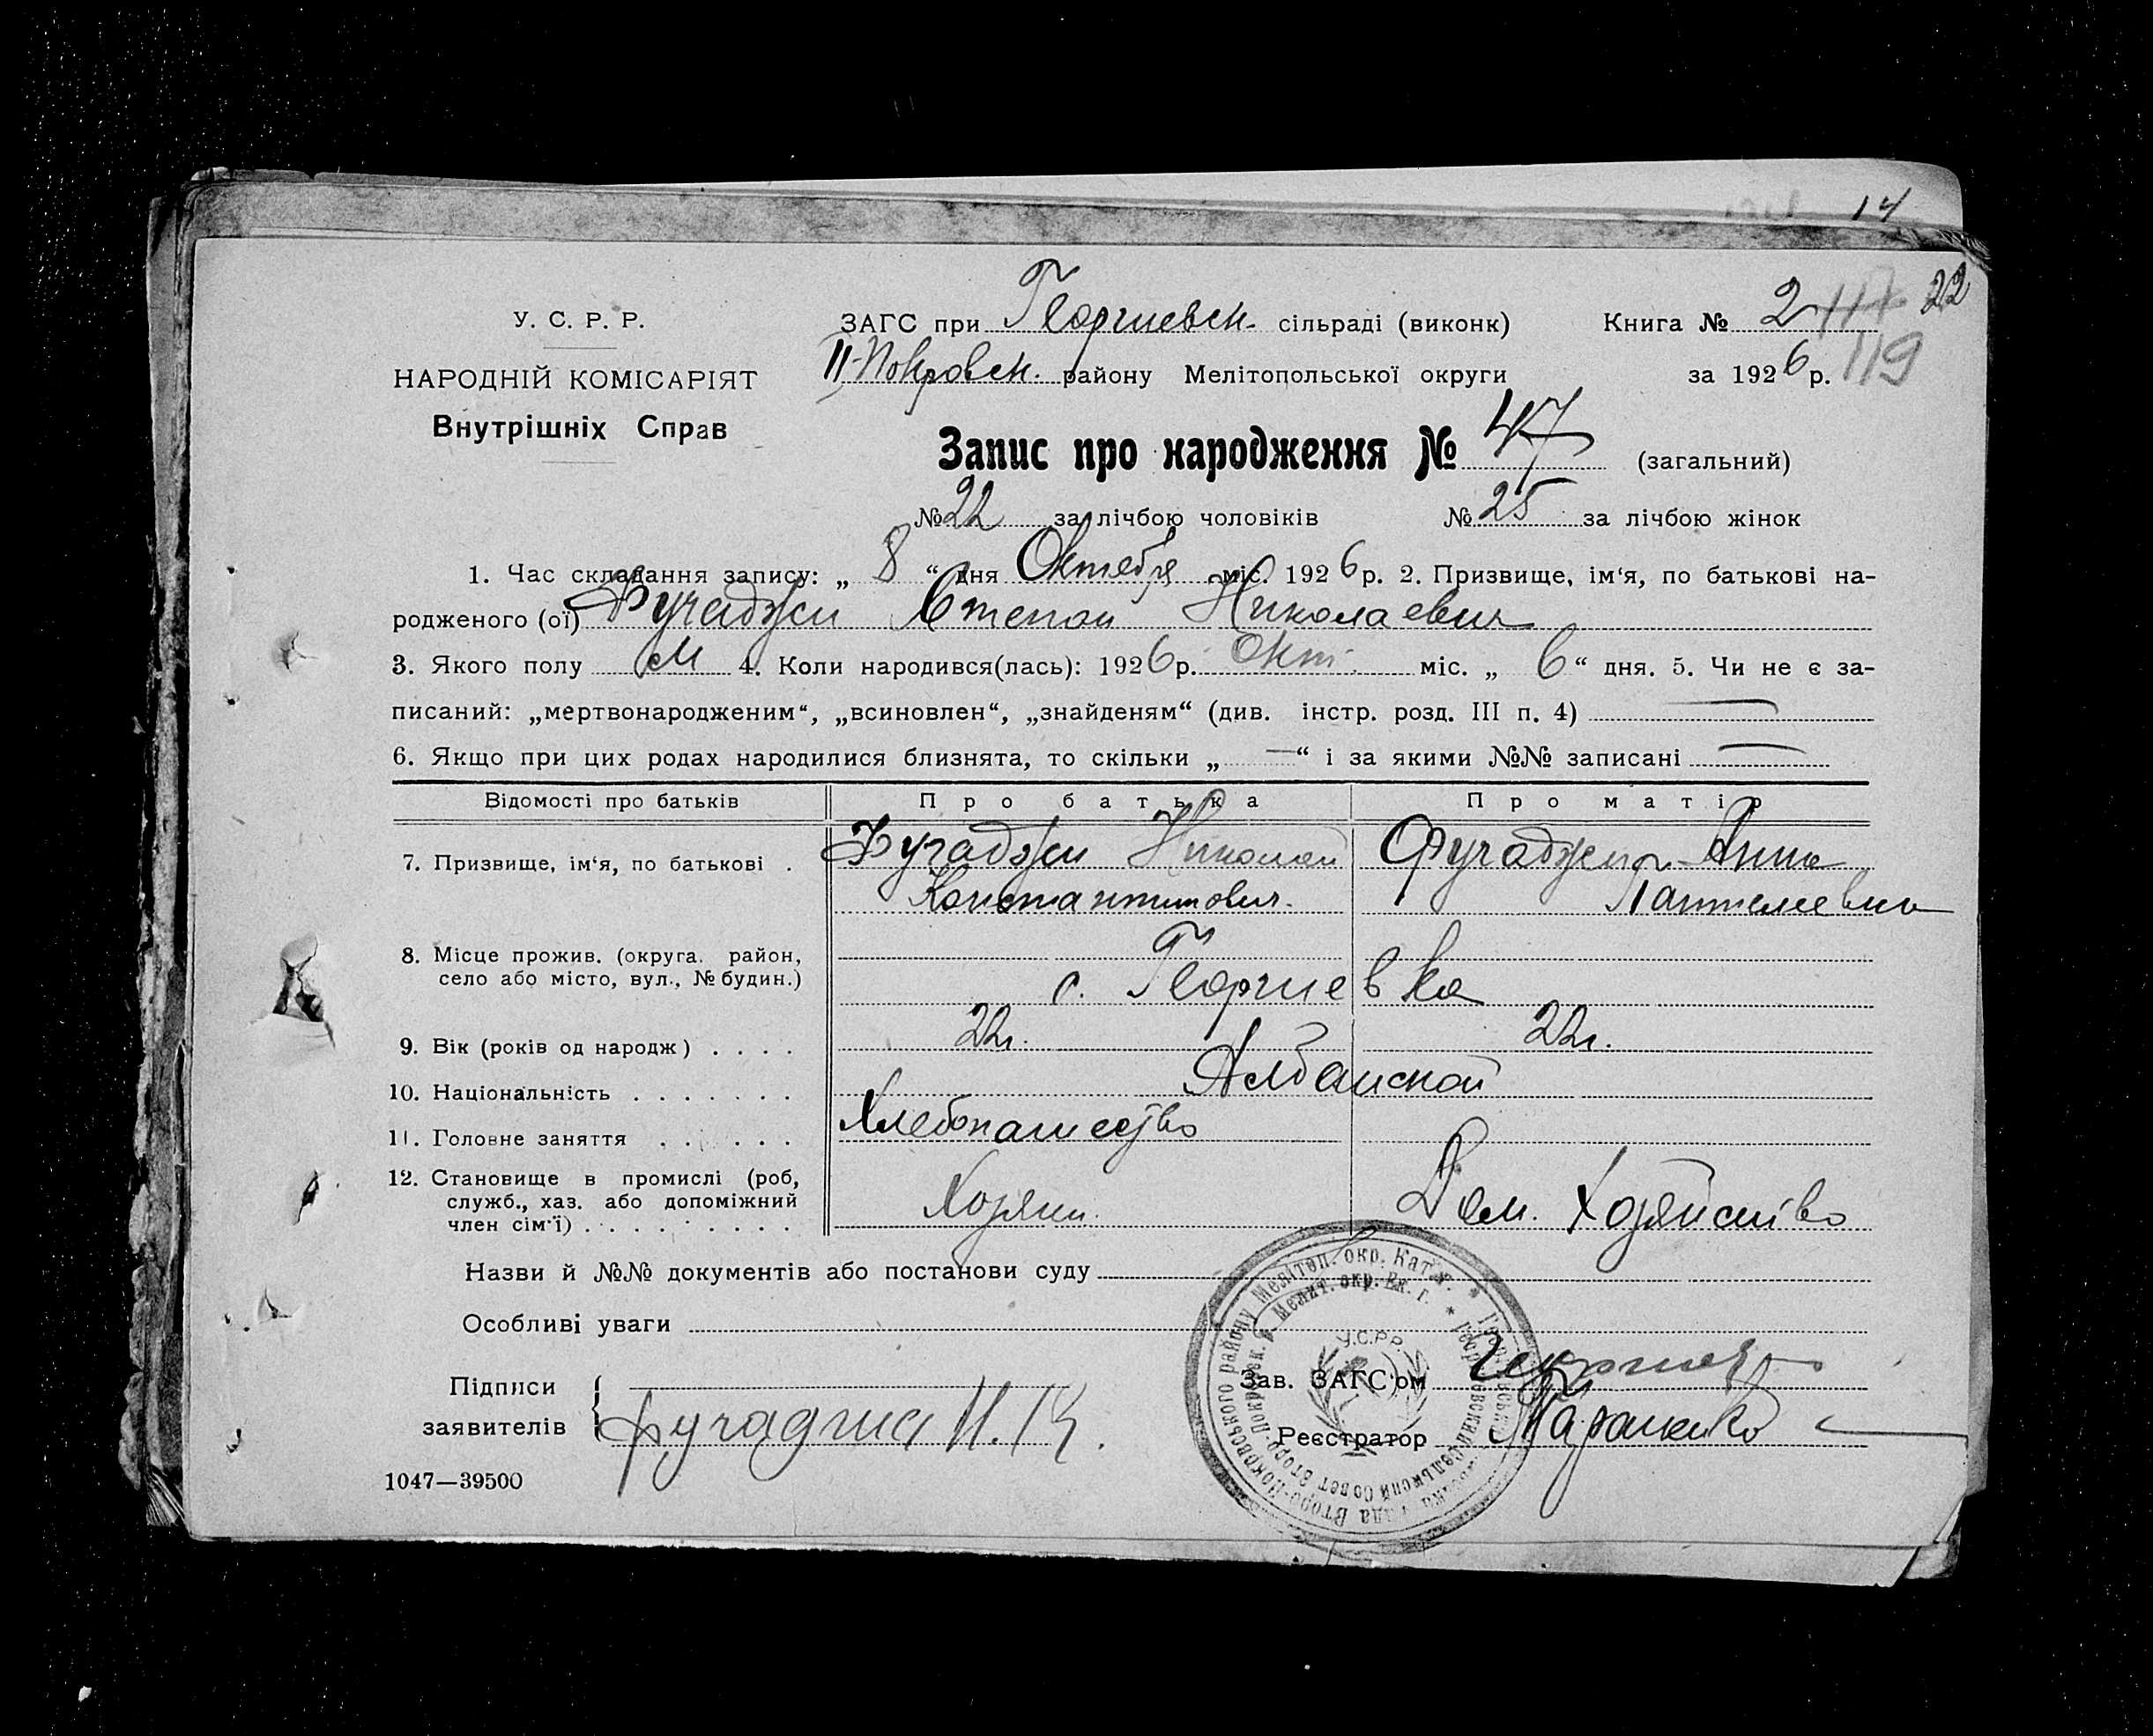 14
У. С. Р. Р.
НАРОДНІЙ КОМІСАРІЯТ
Внутрішніх Справ
ЗАГС при Георгиевск. сільраді (виконк) Книга № 2 117 22
II-Покровск. району Мелітопольської округи за 1926 р. 119
Запис про народження № 47 (загальний)
№ 22 за лічбою чоловіків № 25 за лічбою жінок
1. Час складання запису: „ 8 “ дня Октября міс. 1926 р. 2. Призвище, ім‘я, по батькові на-
родженого (ої) Фучаджи Степан Николаевич
3. Якого полу м 4. Коли народився(лась): 1926 р. Окт. міс. „ 6 “ дня. 5. Чи не є за-
писаний: „мертвонародженим“, „всиновлен“, „знайденям“ (див. інстр. розд. III п. 4) —
6. Якщо при цих родах народилися близнята, то скільки „ — “ і за якими №№ записані —
Відомості про батьків Про батька Про матір
7. Призвище, ім‘я, по батькові . Фучаджи Николай Фучаджи Анна
Константинович. Пантелеевна
8. Місце прожив. (округа, район,
село або місто, вул., № будин.) с. Георгиевка
9. Вік (років од народж) . . . . 22г. 22г.
10. Національність . . . . . . . Албанской
11. Головне заняття . . . . . Хлебопашество
12. Становище в промислі (роб,
служб., хаз. або допоміжний
член сім‘ї) . . . . . . . . . Хозяин. Дом. Хозяйство
Назви й №№ документів або постанови суду
Особливі уваги
Підписи
заявителів Фучаджи Н. К.
Зав. ЗАГС‘ом
Реєстратор
У.С.Р.Р.
1047—39500